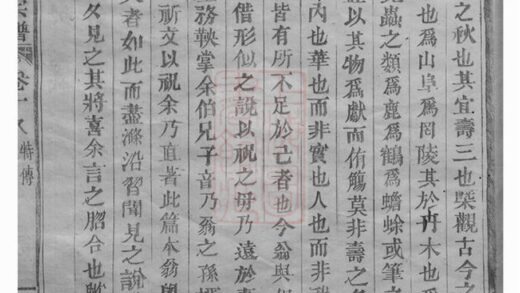 之秋也其宜壽三也槩觀古今之
也爲山阜爲罔陵其於卉木也
蟲之類爲鹿爲鶴爲蟾蜍或筆之
以其物爲獻而侑觴莫非壽之
內也華也而非實也人也而非
皆有所不足於己者也今翁與
借形似之說以祝之毋乃遠於
務鞅掌余伯兄子音乃翁之孫
祈文以祝余乃直著此篇本翁
者如此而盡滌沿習聞見之說
久見之其將喜余言之脗合也
譜 卷十八 特傳